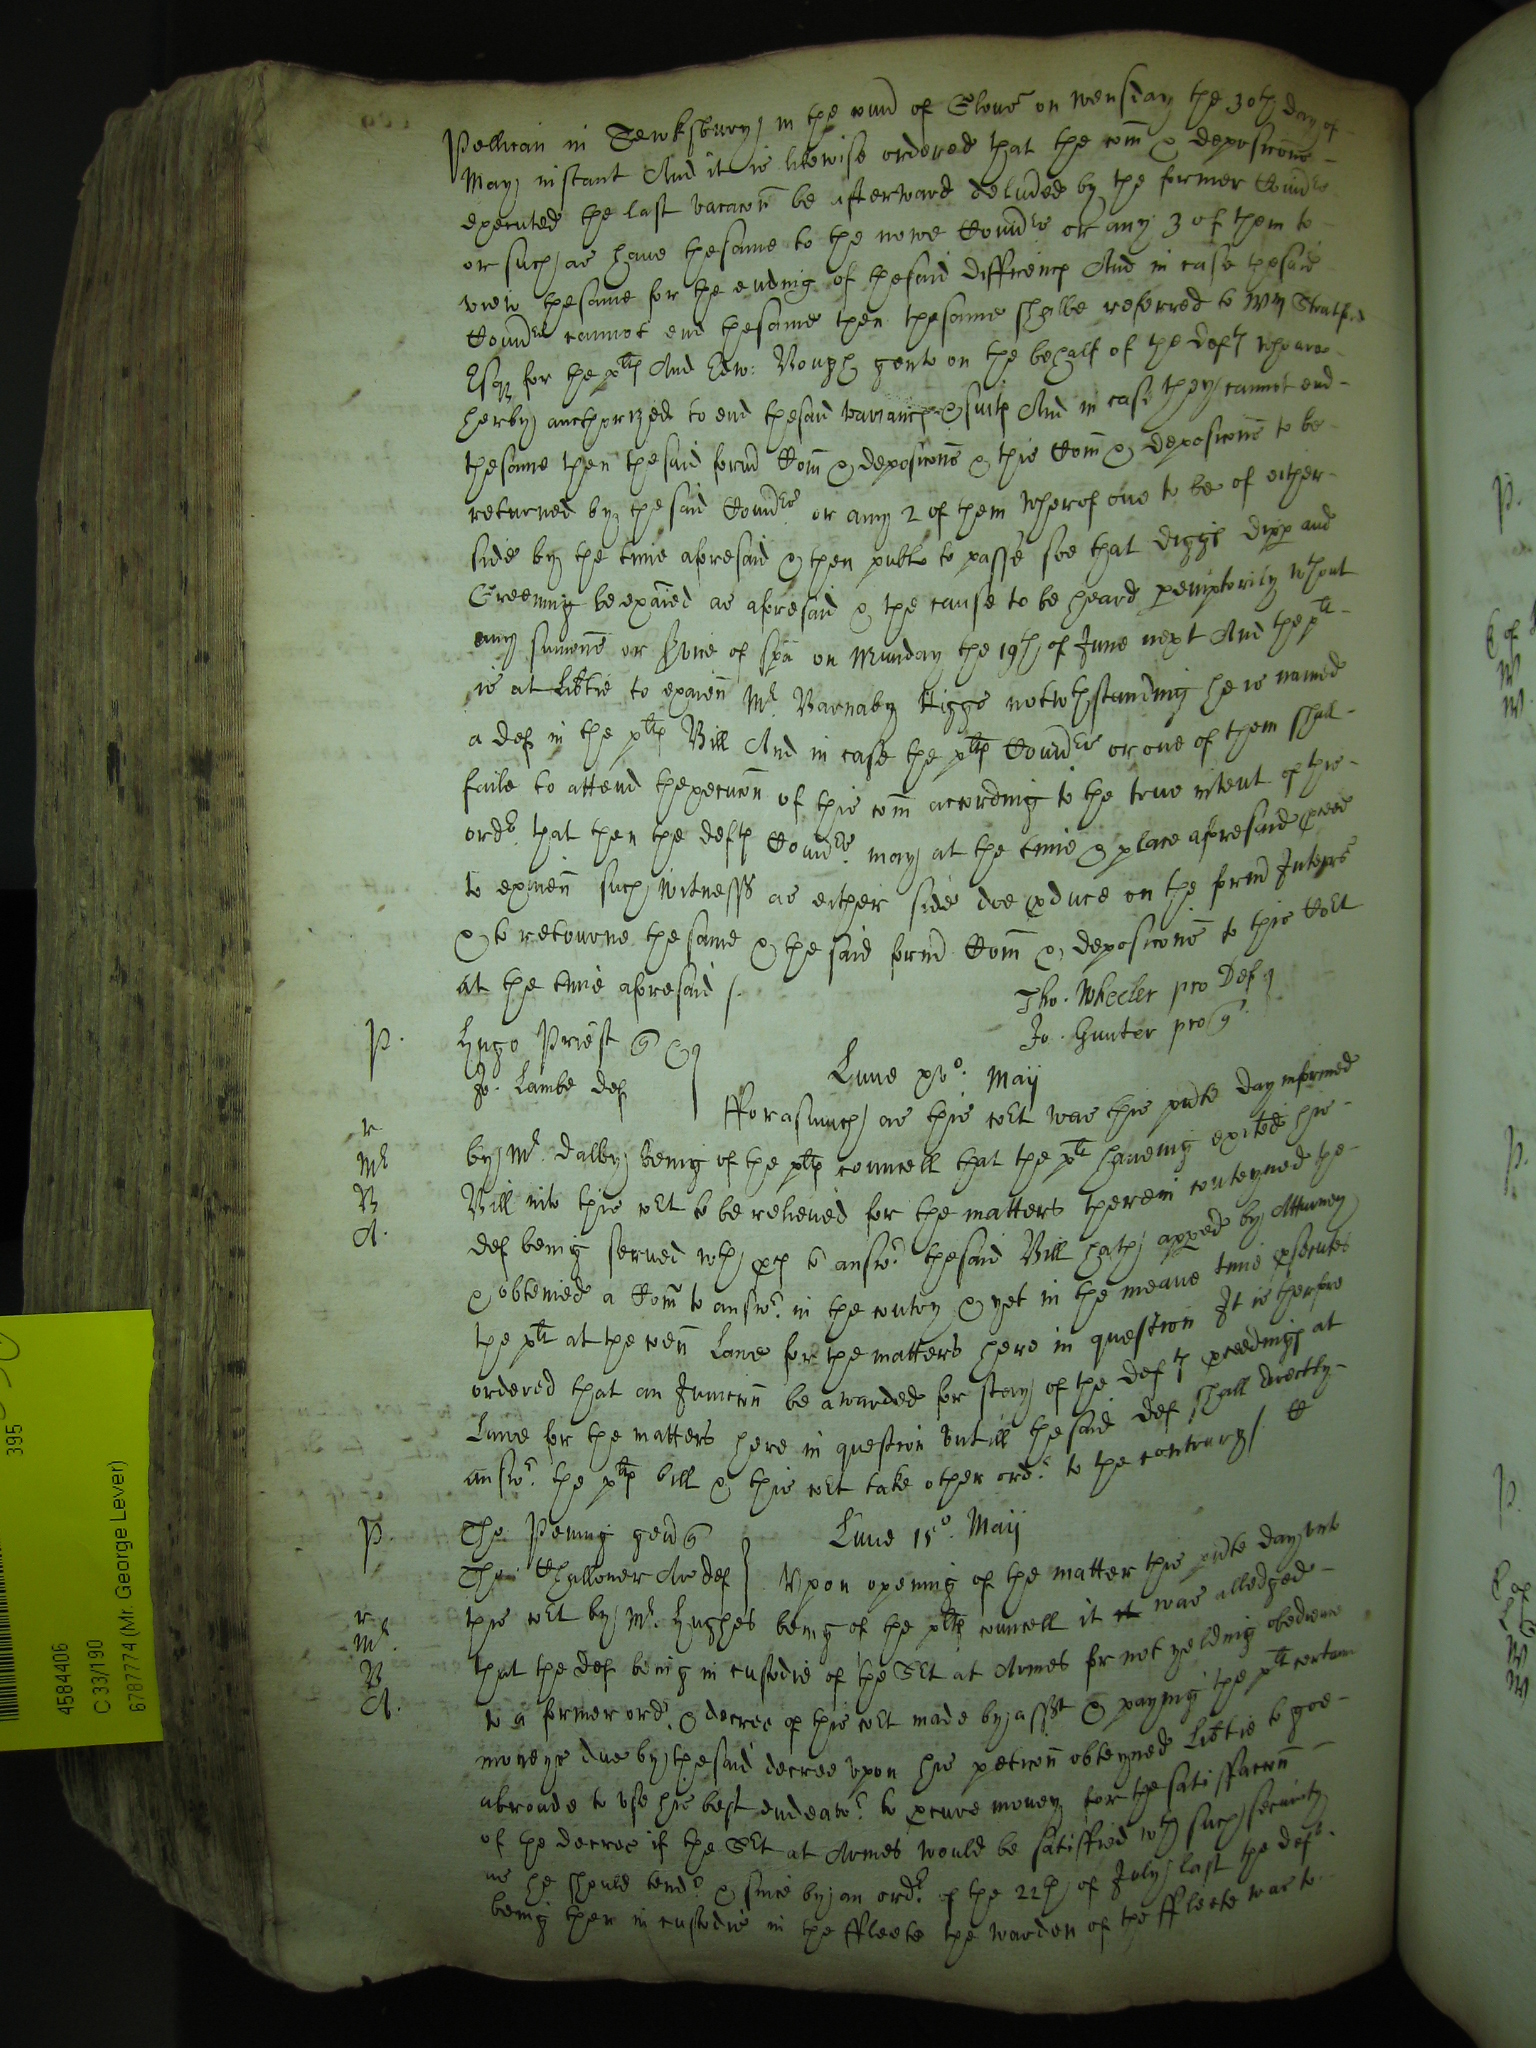 Pellican in Tewksbury in the com̄ of Glouc̄ on wensday the 30th day of
May instant And it is likewise ordered that the com̄ & deposicōns
executed the last vacacōn be afterward deliūed by the former Com̄rs
or such as have thesame to the nowe Com̄rs or any 3 of them to
view thesame for the ending of thesaid difference And in case thesaid
Com̄rs cannot end thesame then thesame shalbe referred to Wm Stratford
Esqr for the pltf And Edw: Vough gent on the behalf of the deft who are
herby aucthorized to end thesaid variance & suite And in case they cannot end
thesame then thesaid form̄ Com̄ & deposicōns & this Com̄ & deposicōns to be
returned by the said Com̄rs or any 2 of them wherof one to be of either
side by the time aforesaid & then publ to passe soe that Diggs Dipp and
Greening be exaīed as aforesaid & the cause to be heard peremptorily wthout
any sum̄ons or Svice of spa on Munday the 19th of June next And the plt
is at libtie to exaīen Mr Barnaby Higgs notwthstanding he is named
a def in the plts Bill And in case the plts Com̄rs or one of them shall
faile to attend thexecucōn of this com̄ according to the true intent of this
ordr that then the defts Com̄rs may at the time & place aforesaid pceed
to exaīen such witnesses as either side doe pduce on the form̄ Interrs
& to retourne the same & the said form̄ Com̄ & deposicōns to this Cort
at the time aforesaid /.
Tho. Wheeler pro Def
Jo. Hunter pro q
P.
Hugo Priest q
Jo. Lambe def
Lune xvo. Maij
Fforasmuch as this cort was this pnte day informed
r
Mr
B
A.
by Mr. Dalby being of the plts councell that the plt haveing exited his
Bill into this cort to be relieved for the matters therein conteyned the
def being served wth pces to answr thesaid Bill hath apped by Attorney
& obteined a Com̄ to answr. in the cōntry & yet in the meane time psecutes
the plt at the com̄en Lawe for the matters here in question It is therfore
ordered that an Juncc̄on be awarded for stay of the defts pceedings at
Lawe for the matters here in question untill the said def shall directly
answr. the plts bill & this cort take other ordr. to the contrary /
P.
Tho Pennig gen̄ q
Tho Challoner Ar def
Lune 15o. Maij
Upon opening of the matter this pnte day unto
r
Mr.
B
A.
this cort by Mr. Hughes being of the plts councell it was alledged
that the def being in custodie of the Sert at Armes for not yelding obedience
to a former ordr. & decree of this cort made by asst & paying the plt certain
moneys due by thesaid decree upon his peticōn obteyned libtie to goe
abroade to use his best endeavor. to pcure money for the satisffaccōn
of the decree if the Sert at Armes would be satisfied wth such security
as he should tendr. & since by an ordr. of the 22th of July last the deft.
being then in custodie in the Ffleete the warden of the Ffleete was to
395
4584406
C 33/190
6787774 (Mr. George Lever)